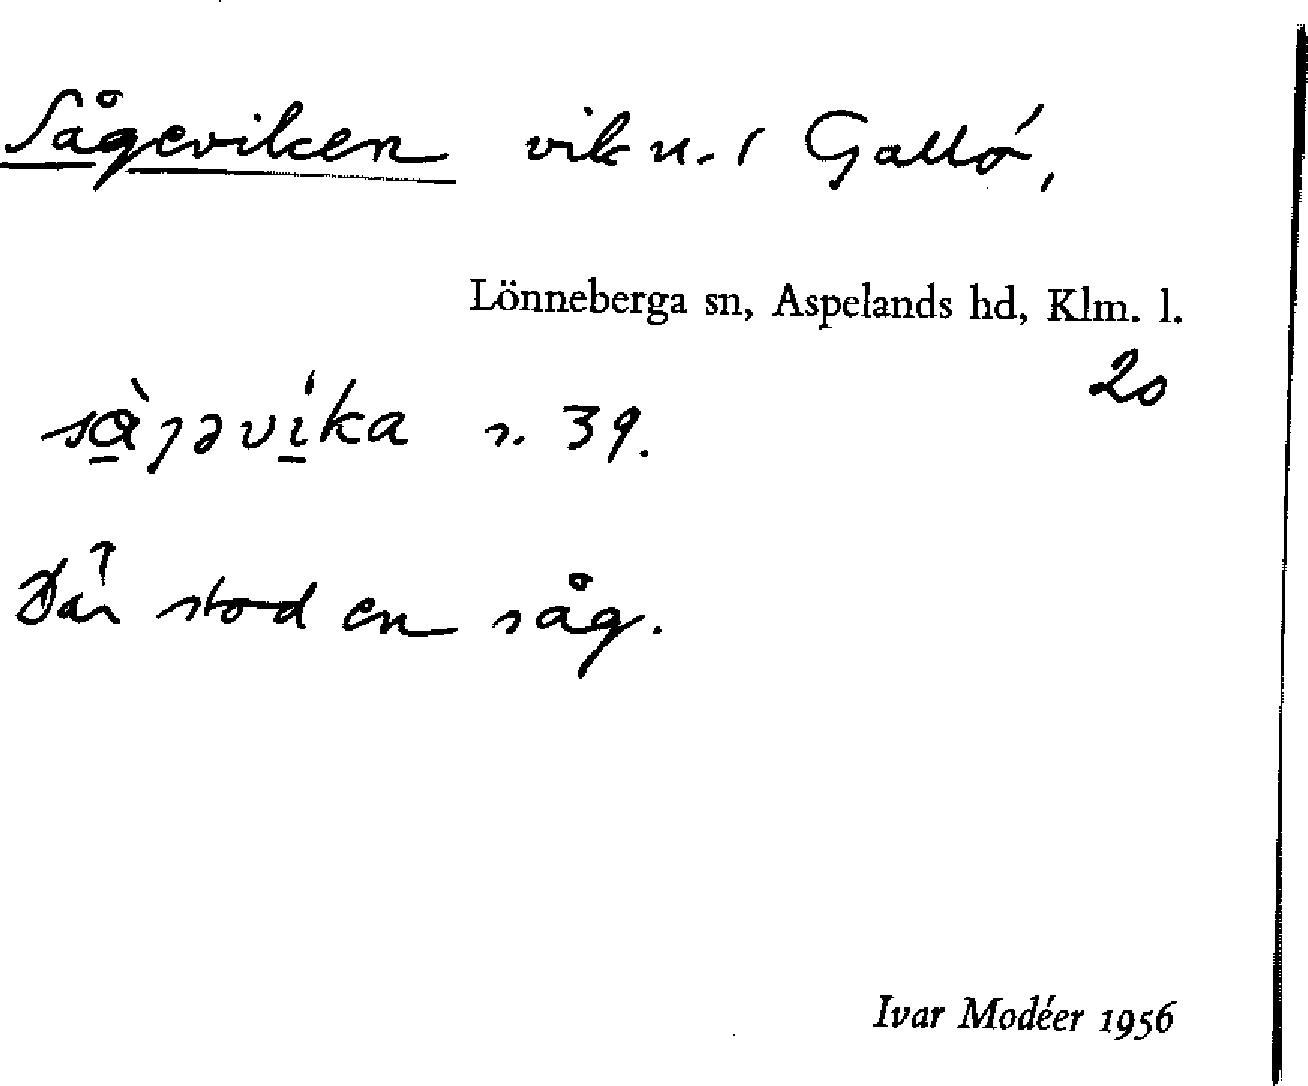 Sågeviken vik n. i Gallö,
Lönneberga sn, Aspelands hd, Klm. l.
20
s. 39.
Där stod en såg.
Ivar Modéer 1956